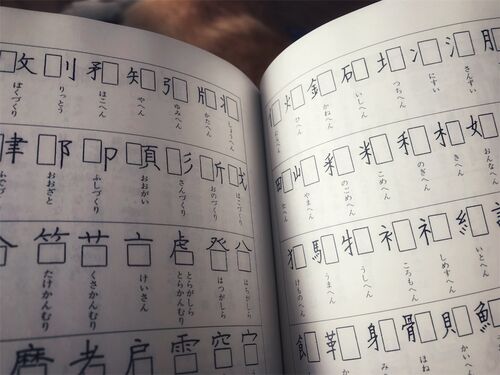 氵 さんずい
冫 にすい
土 つちへん
石 いしへん
金 かねへん
火
女 おんなへん
木 きへん
禾 のぎへん
米 こめへん
釆 のごめへん
山 やまへん
糸 いとへん
礻 しめすへん
衤 ころもへん
牜 うしへん
馬 うまへん
犭 けものへん
魚
貝 かい
骨 ほね
身 み
革 か
飠
丬 しょうへん
片 かたへん
弓 ゆみへん
矢 やへん
矛 ほこへん
刂 りっとう
攵 ぼくづくり
戈 ほこづくり
斤 おのづくり
彡 さんづくり
頁 おおがい
卩 ふしづくり
阝 おおざと
聿
八 はちがしら
癶 はつがしら
虍 とらがしら
とらかんむり
亠 けいさん
艹 くさかんむり
⺮ たけかんむり
穴
雨
戸
耂
麻